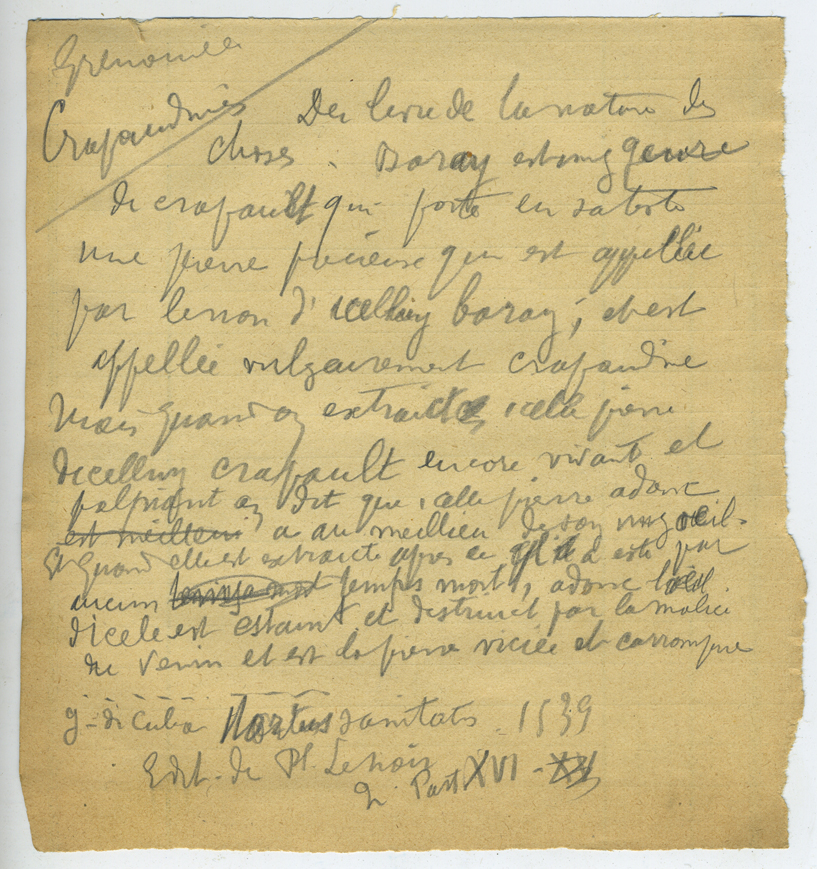 Grenouille
Crapaudines Du livre de la nature des
choses. Boray est ung genre
de crapault qui porte en sa teste
une pierre précieuse qui est appellée
par le nom d'icelluy boray; et est
appellée vulgairement crapaudine
Mais quand on extraict icelle pierre
dicelluy crapault encore vivant et
palpitant on dit que icelle pierre adonc
est meilleur a au meillieu de soy ung oeil.
Et quand elle est extraicte apres ce qu'il a esté par
aucun temps mort, adonc l'oeil
dicele est estaint et destruict par la malice
du venin et est la pierre viciée et corrompue
g. de Cuba Hortus sanitatis. 1539
Edit. de Ph. Lenoir
2 Part XVI - XVI